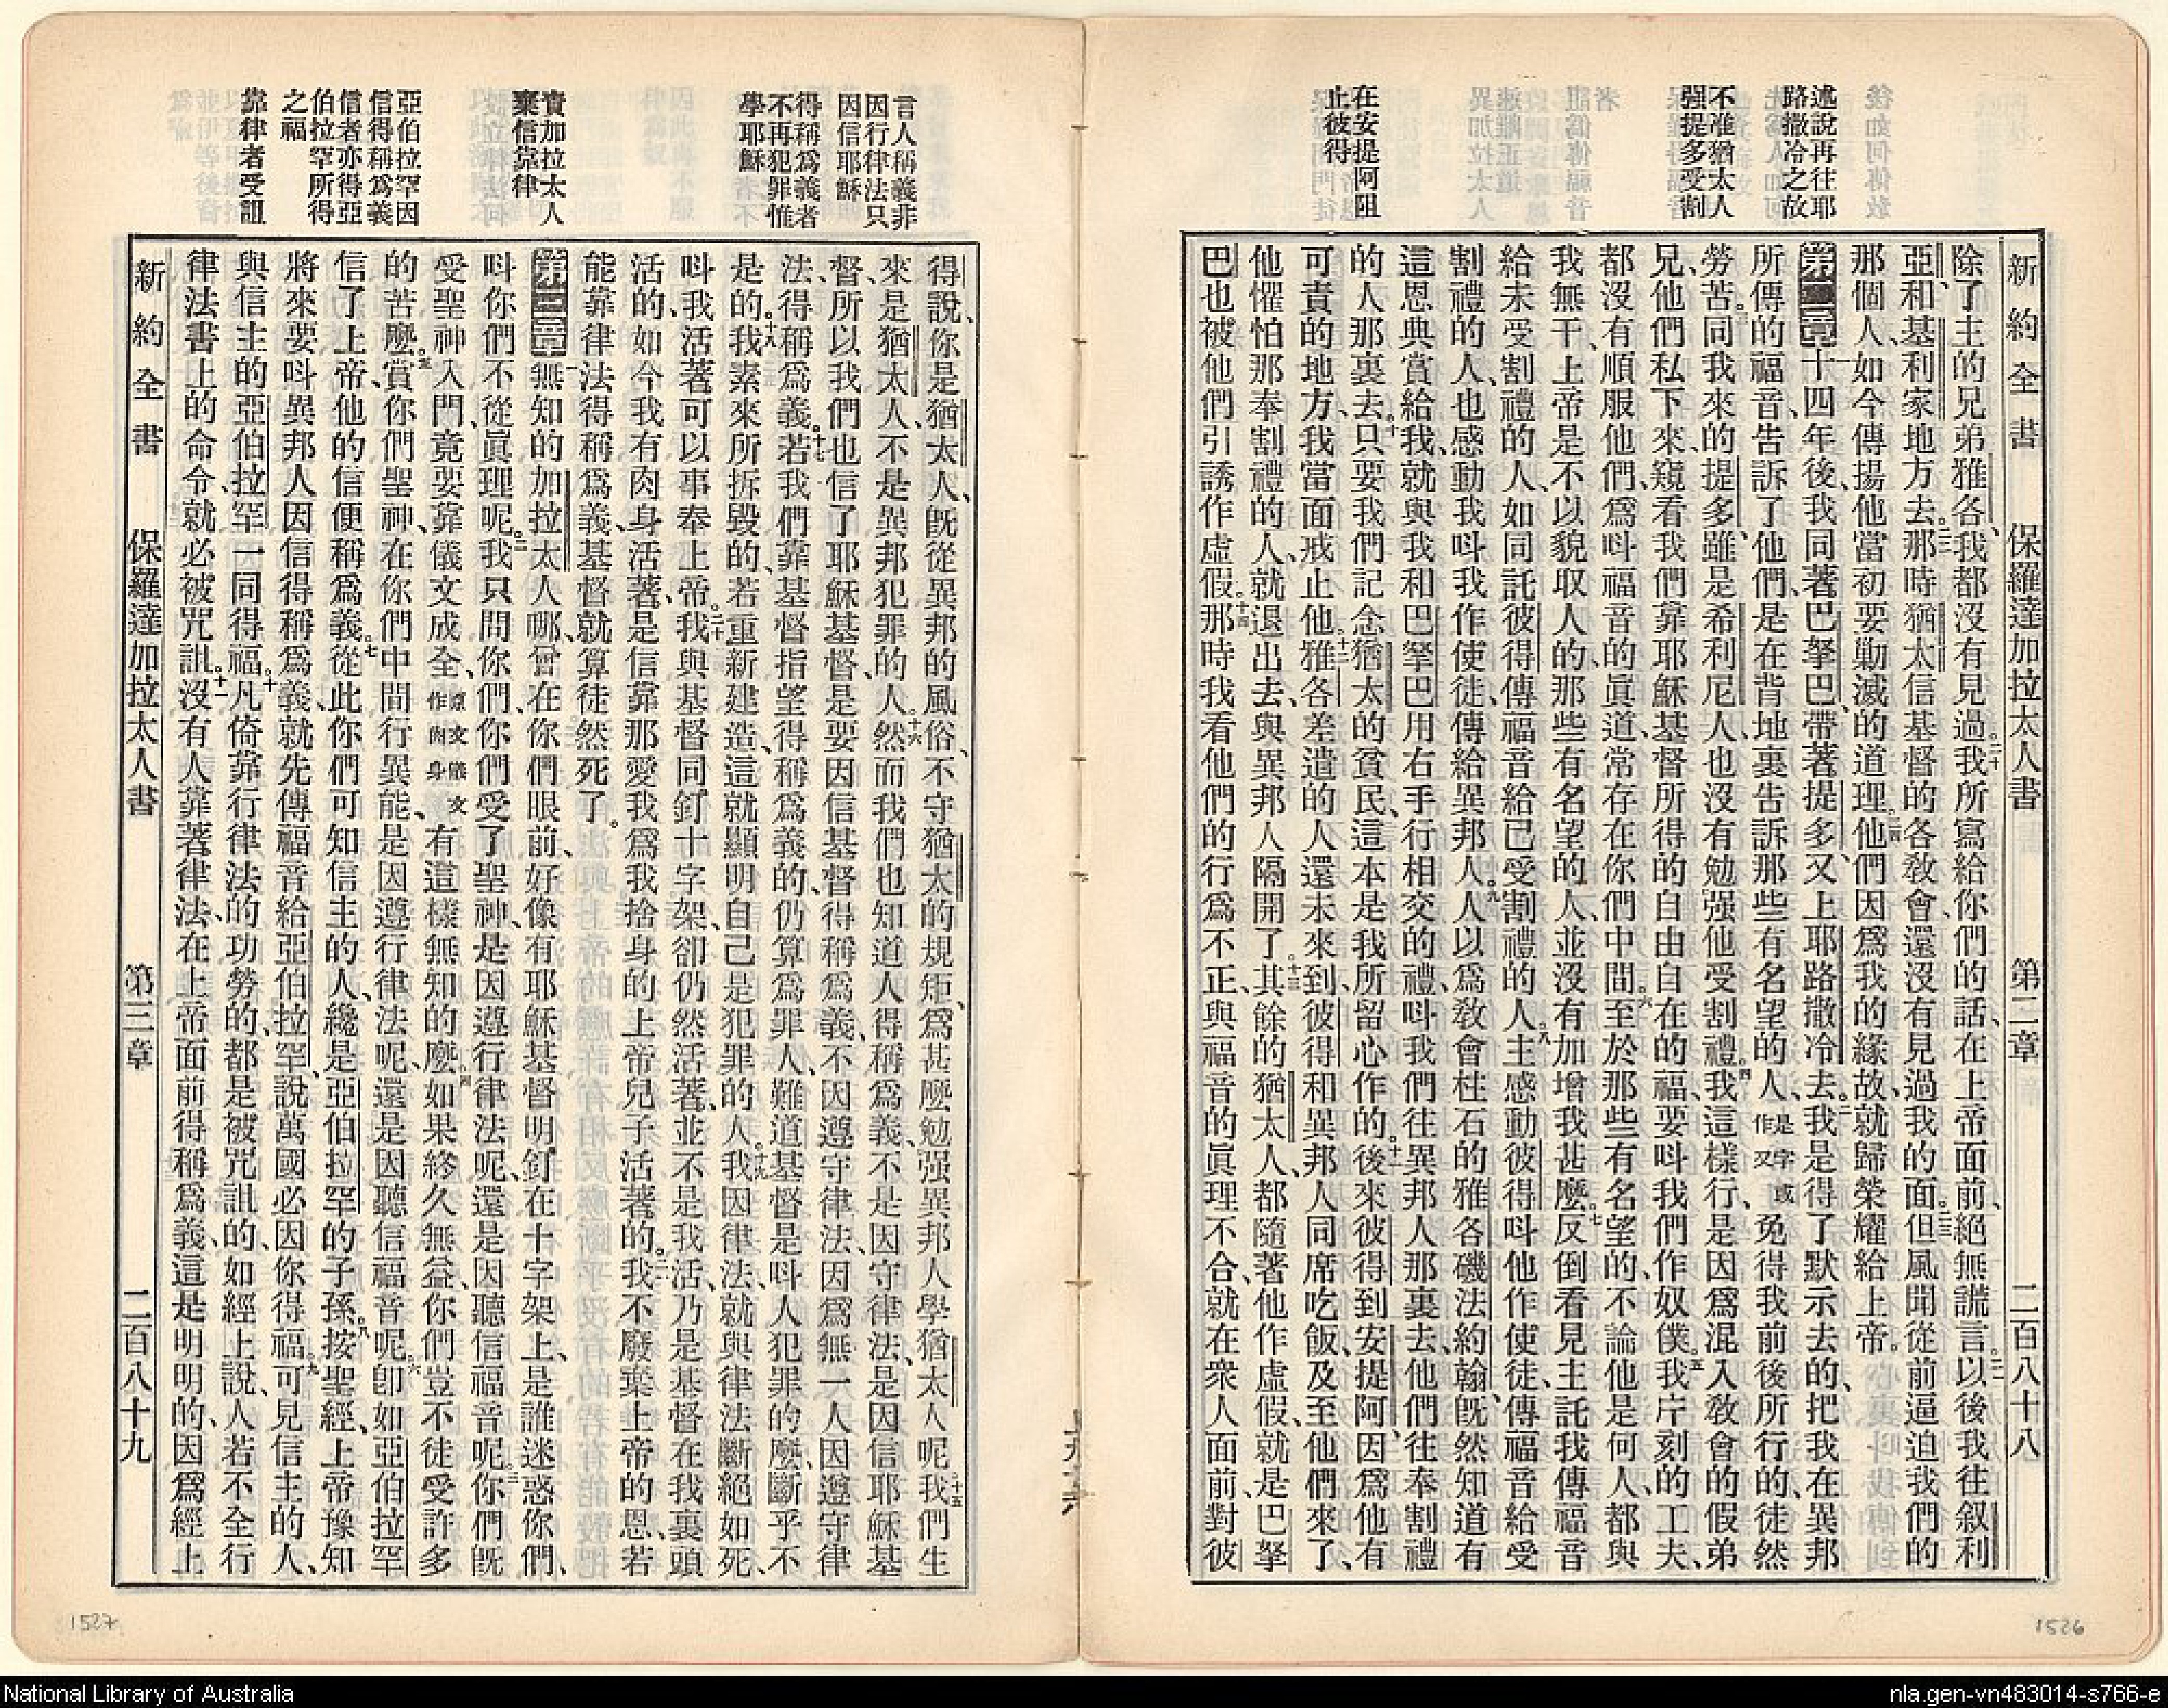 述說再往耶
路撒冷之故
不准猶太人
强提多受割
在安提阿阻
止彼得
新約全書 保羅達加拉太人書 第二章 二百八十八
除了主的兄弟雅各、我都沒有見過。二十我所寫給你們的話、在上帝面前、絕無謊言。二一以後我往叙利
亞、和基利家地方去。二二那時猶太信基督的各教會、還沒有見過我的面。二三但風聞從前逼迫我們的
那個人、如今傳揚他當初要勦滅的道理。二四他們因爲我的緣故、就歸榮耀給上帝。
第二章一十四年後、我同著巴拏巴、帶著提多、又上耶路撒冷去。二我是得了默示去的、把我在異邦
所傳的福音、告訴了他們、是在背地裏告訴那些有名望的人、是字或作又免得我前後所行的、徒然
勞苦。三同我來的提多、雖是希利尼人、也沒有勉强他受割禮。四我這樣行、是因爲混入教會的假弟
兄、他們私下來、窺看我們靠耶穌基督所得的自由自在的福、要呌我們作奴僕。五我片刻的工夫、
都沒有順服他們、爲呌福音的眞道、常存在你們中間。六至於那些有名望的、不論他是何人、都與
我無干、上帝是不以貌取人的、那些有名望的人、並沒有加增我甚麼。七反倒看見主託我傳福音
給未受割禮的人、如同託彼得傳福音給已受割禮的人。八主感動彼得呌他作使徒、傳福音給受
割禮的人、也感動我呌我作使徒、傳給異邦人。九人以爲敎會柱石的雅各磯法約翰、旣然知道有
這恩典賞給我、就與我和巴拏巴用右手行相交的禮、呌我們往異邦人那裏去、他們往奉割禮
的人那裏去。十只要我們記念猶太的貧民、這本是我所留心作的。十一後來彼得到安提阿、因爲他有
可責的地方、我當面戒止他。十二雅各差遣的人還未來到、彼得和異邦人同席吃飯、及至他們來了、
他懼怕那奉割禮的人、就退出去、與異邦人隔開了。十三其餘的猶太人、都隨著他作虛假、就是巴拏
巴也被他們引誘作虛假。十四那時我看他們的行爲不正、與福音的眞理不合、就在衆人面前、對彼
言人稱義非
因行律法只
因信耶穌
得稱爲義者
不再犯罪惟
學耶穌
責加拉太人
棄信靠律
亞伯拉罕因
信得稱爲義
信者亦得亞
伯拉罕所得
之福
靠律者受詛
得說、你是猶太人、旣從異邦的風俗、不守猶太的規矩、爲甚麼勉强異邦人學猶太人呢。十五我們生
來是猶太人、不是異邦犯罪的人。十六然而我們也知道人得稱爲義、不是因守律法、是因信耶穌基
督、所以我們也信了耶穌基督、是要因信基督得稱爲義、不因遵守律法、因爲無一人因遵守律
法、得稱爲義。十七若我們靠基督指望得稱爲義的、仍算爲罪人、難道基督是呌人犯罪的麼、斷乎不
是的。十八我素來所拆毀的、若重新建造、這就顯明自己是犯罪的人。十九我因律法、就與律法斷絕如死、
呌我活著可以事奉上帝。二十我與基督同釘十字架、卻仍然活著、並不是我活、乃是基督在我裏頭
活的、如今我有肉身活著、是信靠那愛我、爲我捨身的上帝兒子活著的。二一我不廢棄上帝的恩、若
能靠律法得稱爲義、基督就算徒然死了。
第三章一無知的加拉太人哪、曾在你們眼前、好像有耶穌基督、明釘在十字架上、是誰迷惑你們、
呌你們不從眞理呢。二我只問你們、你們受了聖神、是因遵行律法呢、還是因聽信福音呢。三你們旣
受聖神入門、竟要靠儀文成全、原文儀文作肉身有這樣無知的麼。四如果終久無益、你們豈不徒受許多
的苦麼。五賞你們聖神、在你們中間行異能、是因遵行律法呢、還是因聽信福音呢。六卽如亞伯拉罕
信了上帝、他的信便稱爲義。七從此你們可知信主的人、纔是亞伯拉罕的子孫。八按聖經、上帝豫知
將來要呌異邦人因信得稱爲義、就先傳福音給亞伯拉罕、說萬國必因你得福。九可見信主的人、
與信主的亞伯拉罕一同得福。十凡倚靠行律法的功勞的、都是被咒詛的、如經上說、人若不全行
律法書上的命令、就必被咒詛。十一沒有人靠著律法、在上帝面前得稱爲義、這是明明的、因爲經上
新約全書 保羅達加拉太人書 第三章 二百八十九
1527
1526
National Library of Australia
nla.gen-vn483014-s766-e